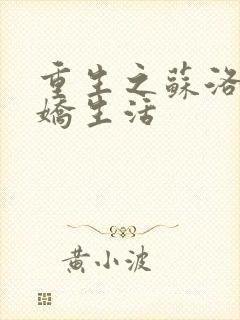 重生之蘇洛
嬌生活
黃小波